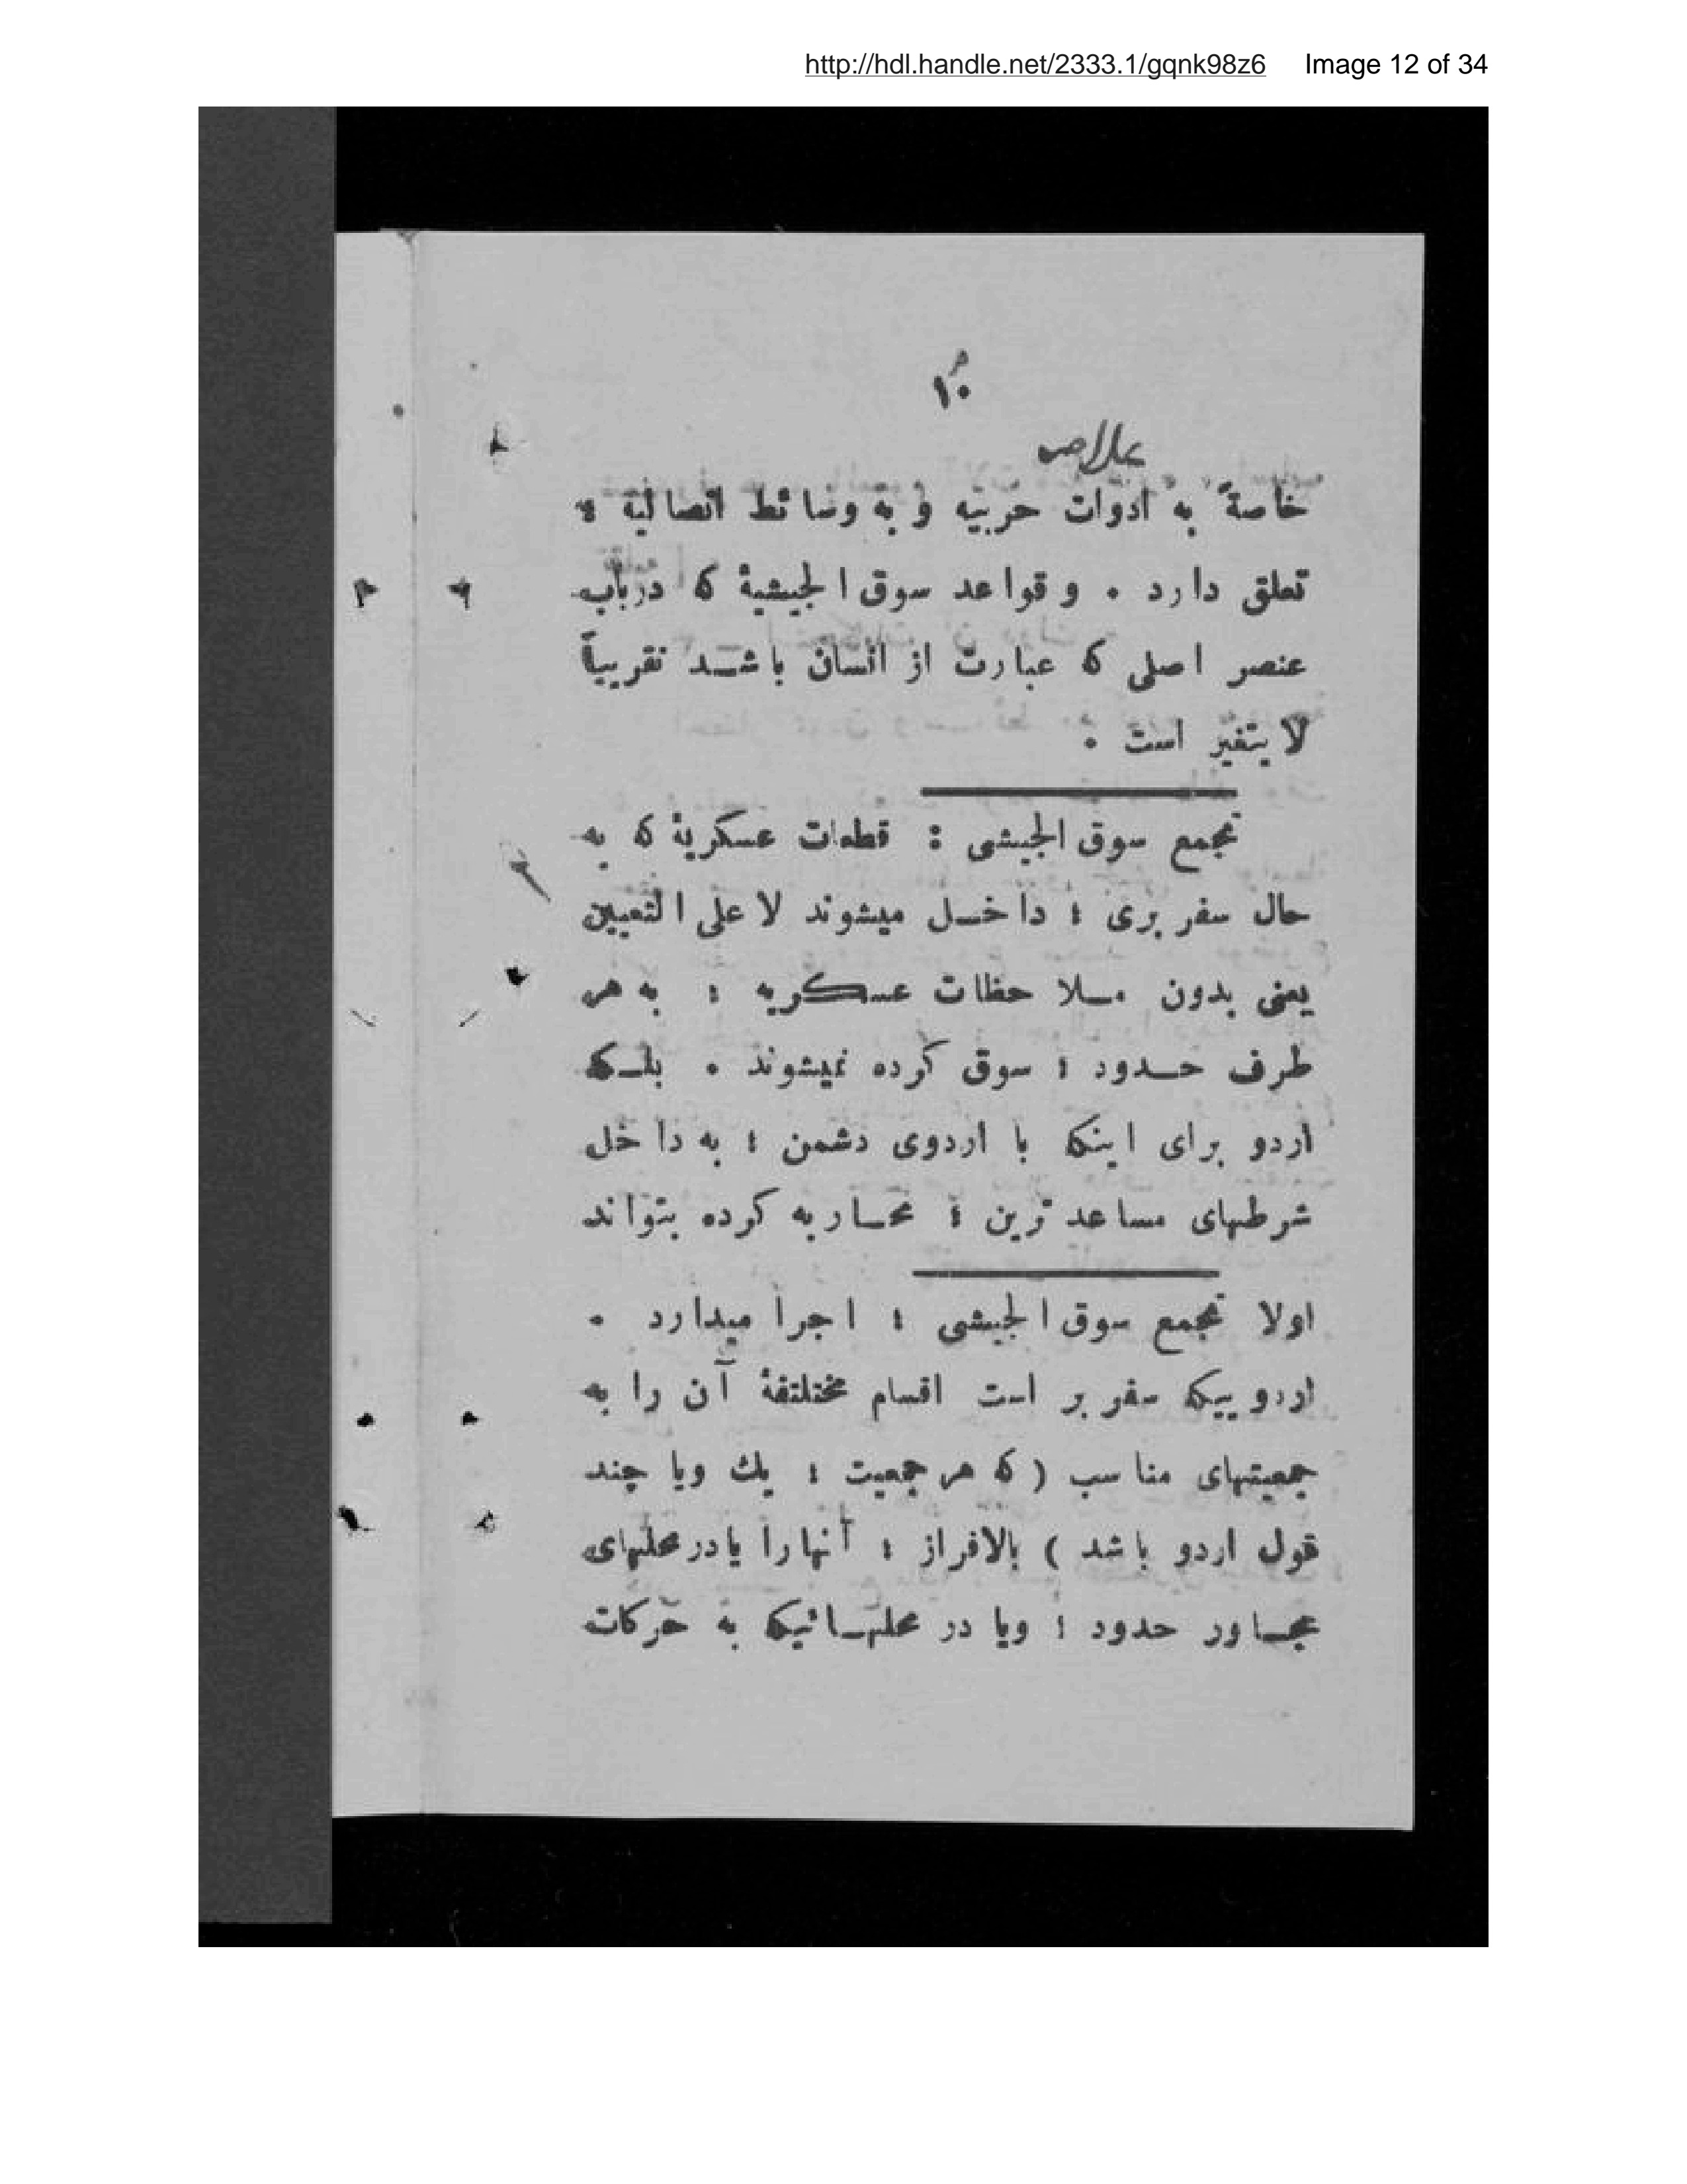 http://hdl.handle.net/2333.1/gqnk98z6 Image 12 of 34
۱۰
خاصةً به ادوات حربیه و به وسائط اتصالیه ؛
تعلق دارد ۰ و قواعد سوق الجیشیهٔ که درباب
عنصر اصلی که عبارت از انسان باشد تقریباً
لا یتغیر است ۰
تجمع سوق الجیشی : قطعات عسکریهٔ که به
حال سفر بری ؛ داخل میشوند لا علی التعیین
یعنی بدون ملاحظات عسکریه ؛ به هر
طرف حدود ؛ سوق کرده نمیشوند ۰ بلکه
اردو برای اینکه با اردوی دشمن ؛ به داخل
شرطهای مساعد ترین ؛ محاربه کرده بتواند
اولا تجمع سوق الجیشی ؛ اجرا میدارد ۰
اردوییکه سفر بر است اقسام مختلتفهٔ آن را به
جمعیتهای مناسب ( که هر جمعیت ؛ یك ویا چند
قول اردو باشد ) بالافراز ؛ آنها را یا در محلهای
مجاور حدود ؛ ویا در محلهائیکه به حرکات